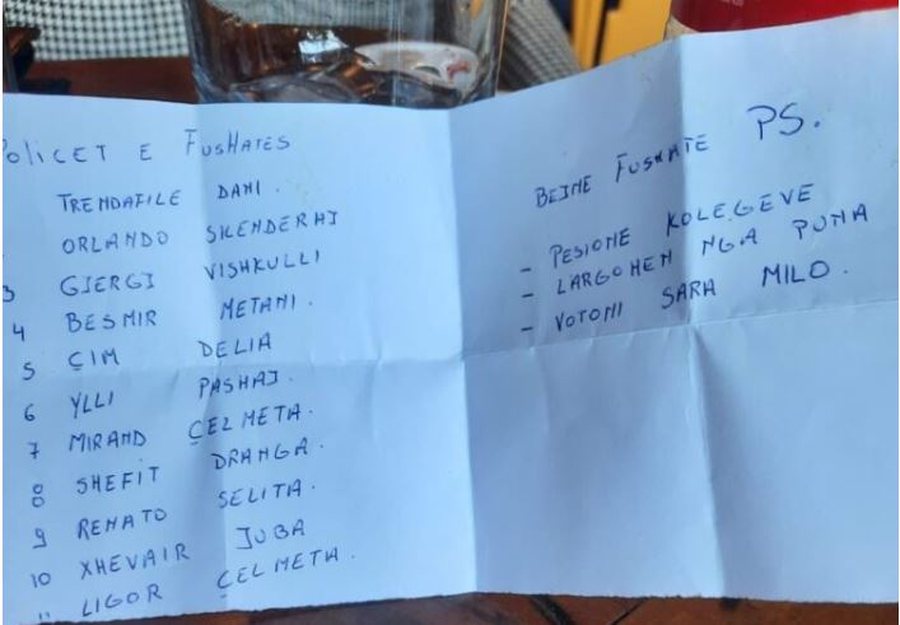 POliCET E FusHATES
TRENDAFILE DANI .
ORLANDO SKENDERAJ
3 GJERGJ VISHKULLI
4 BESMIR METANI .
5 ÇIM DELIA
6 YLLI PASHAJ .
7 MIRAND ÇELMETA .
8 SHEFIT DRANGA .
9 RENATO SELITA .
10 XHEVAIR JUBA
11 LIGOR ÇELMETA .
BEJME FUSHATE PS.
- PESIONE KOLEGEVE
- LARGOHEN NGA PUNA
- VOTONI SARA MILO .